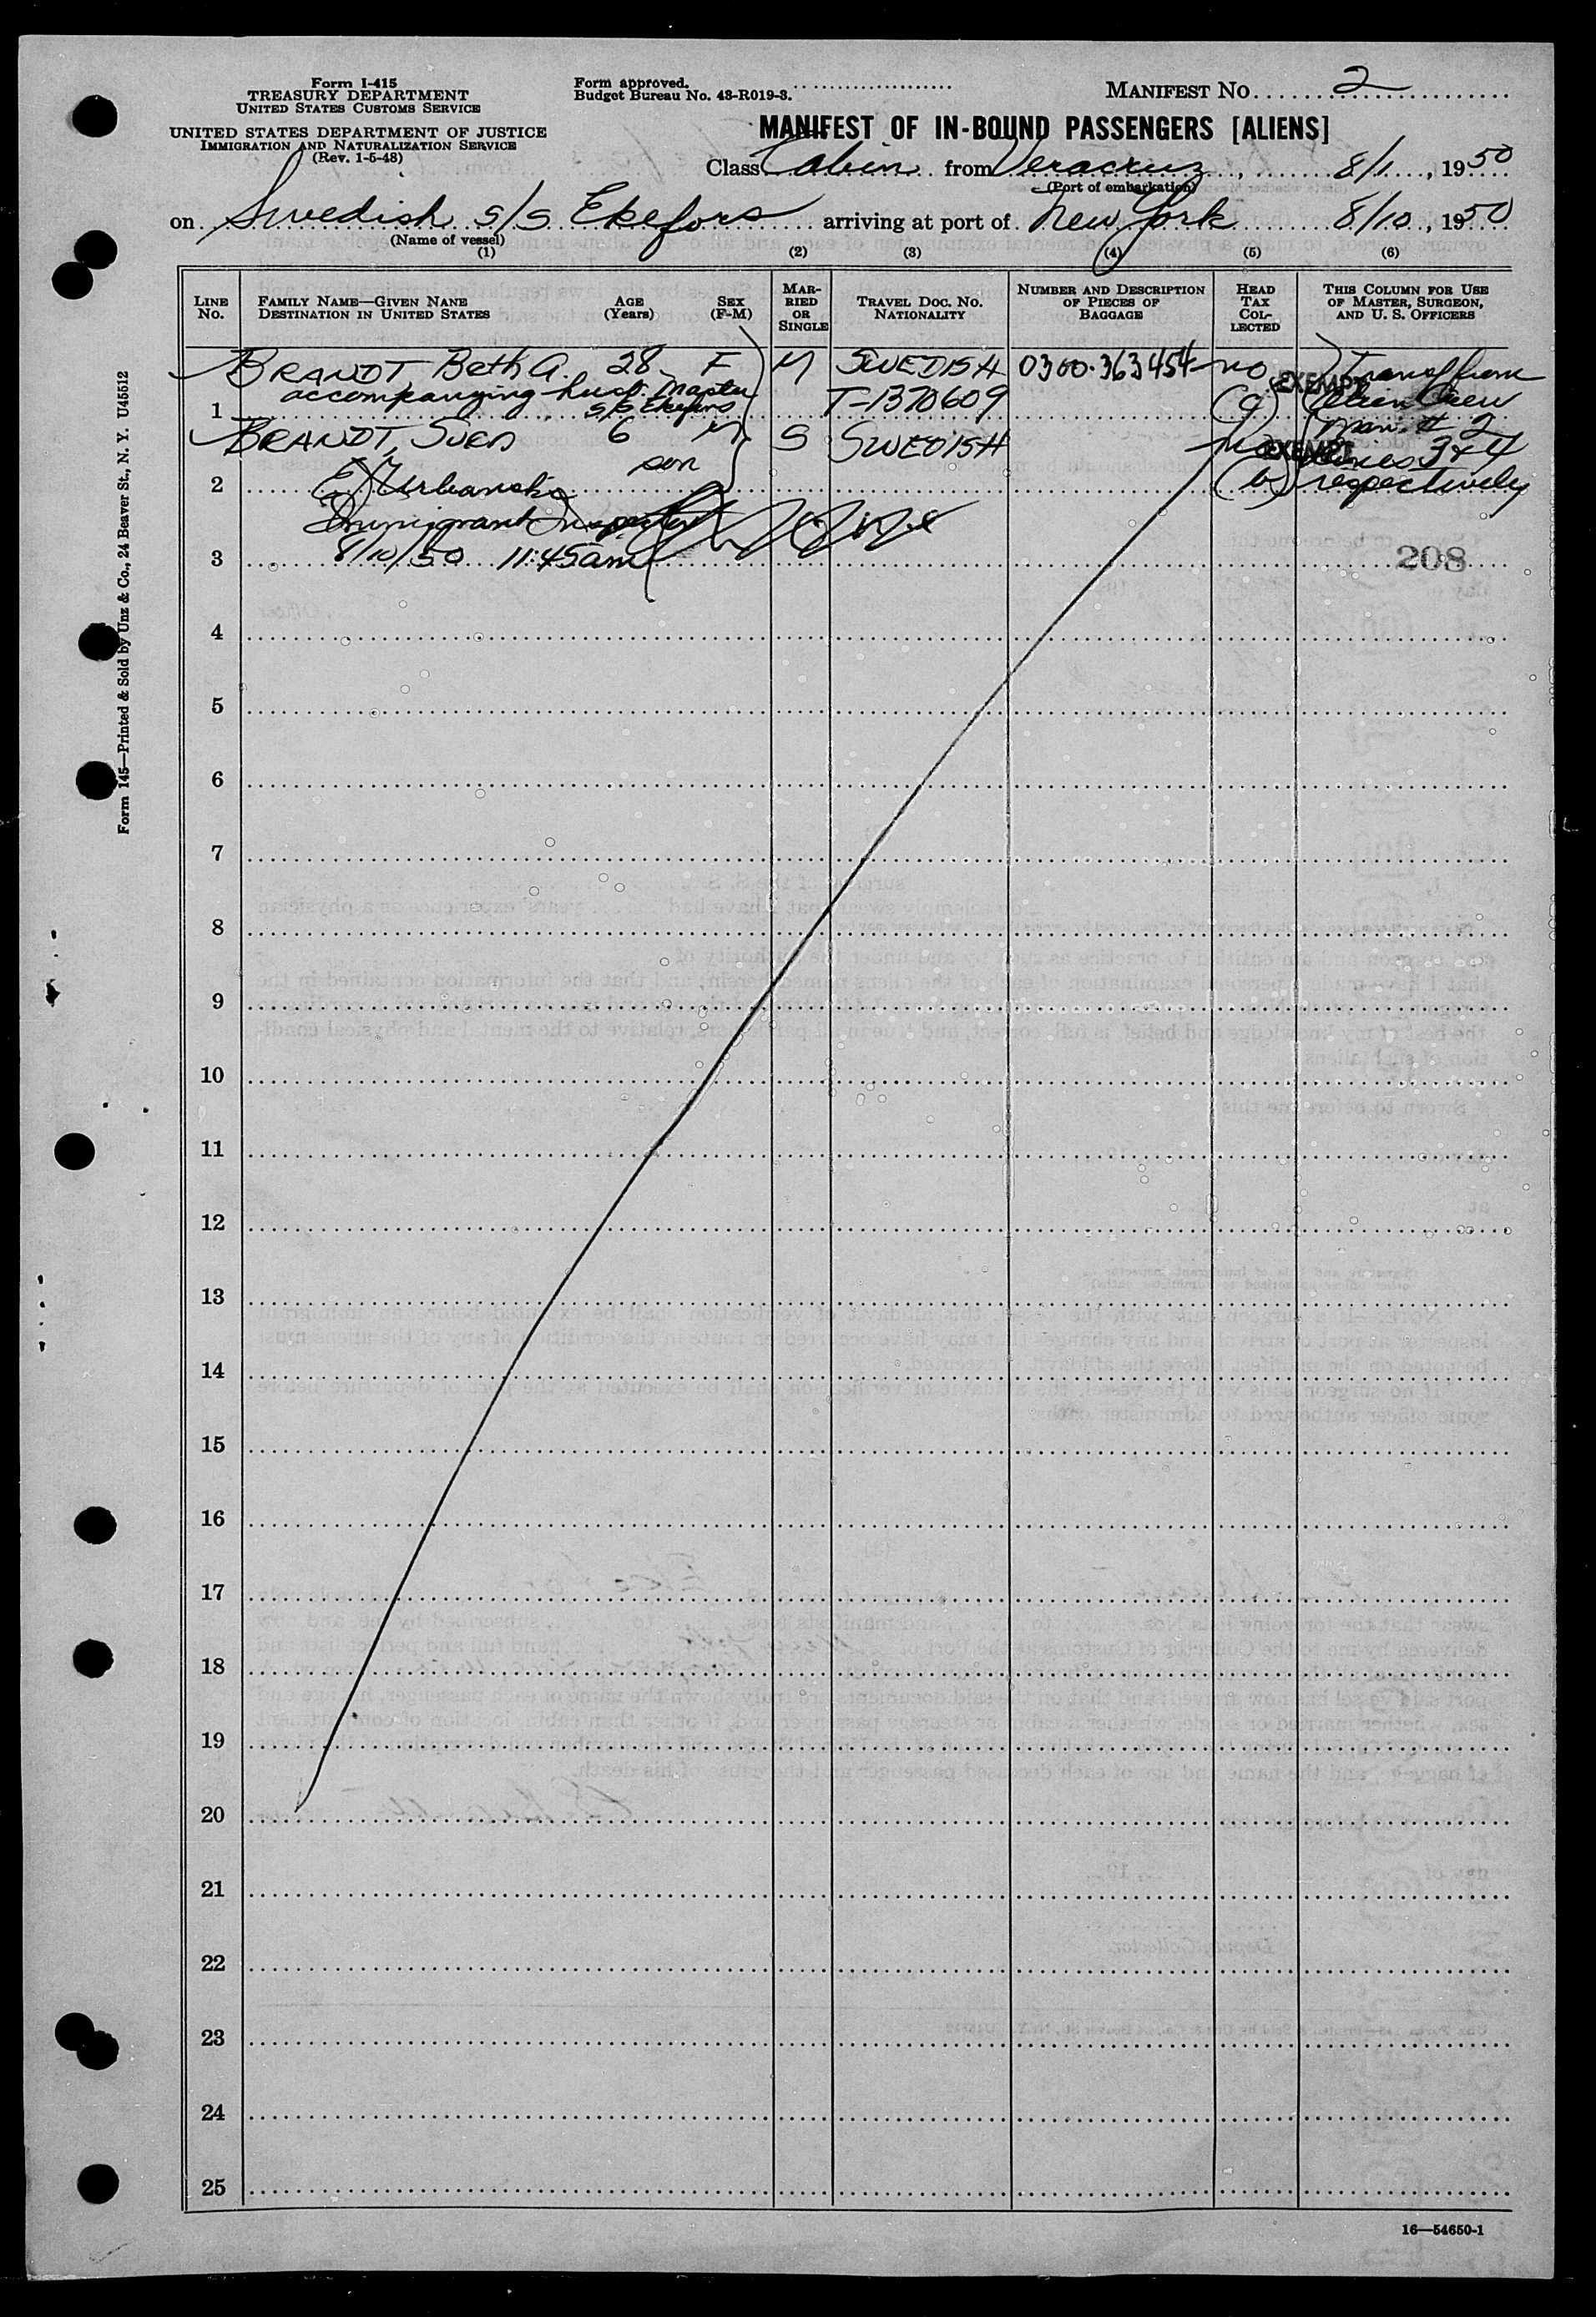 Form I-415
TREASURY DEPARTMENT
UNITED STATES CUSTOMS SERVICE
UNITED STATES DEPARTMENT OF JUSTICE
IMMIGRATION AND NATURALIZATION SERVICE
(Rev. 1-5-48)
Form approved.
Budget Bureau No. 43-R019-3.
MANIFEST NO. 2
MANIFEST OF IN-BOUND PASSENGERS [ALIENS]
Class Cabin from Veracruz, 8/1, 1950
(Port of embarkation)
on Swedish s/s Ekefors arriving at port of New York 8/10, 1950
(Name of vessel)
(1) (2) (3) (4) (5) (6)
LINE NO.
FAMILY NAME—GIVEN NANE
DESTINATION IN UNITED STATES
AGE (Years)
SEX (F-M)
MARRIED OR SINGLE
TRAVEL DOC. NO. NATIONALITY
NUMBER AND DESCRIPTION OF PIECES OF BAGGAGE
HEAD TAX COLLECTED
THIS COLUMN FOR USE OF MASTER, SURGEON, AND U. S. OFFICERS
BRANDT Beth A. 28 F M SWEDISH 0300-363454 no EXEMPT Transf from
1 accompanying husb. Master s/s Ekefors T-1370609 (a) Alien Crew
BRANDT, Sven 6 M S SWEDISH no EXEMPT Man. # 2
son Lines 3 & 4
2 E Urbanski (b) respectively
Immigrant Inspector
3 8/10/50 11:45am 208
4
5
6
7
8
9
10
11
12
13
14
15
16
17
18
19
20
21
22
23
24
25
16—54650-1
Form 145—Printed & Sold by Unz & Co., 24 Beaver St., N. Y. U45512